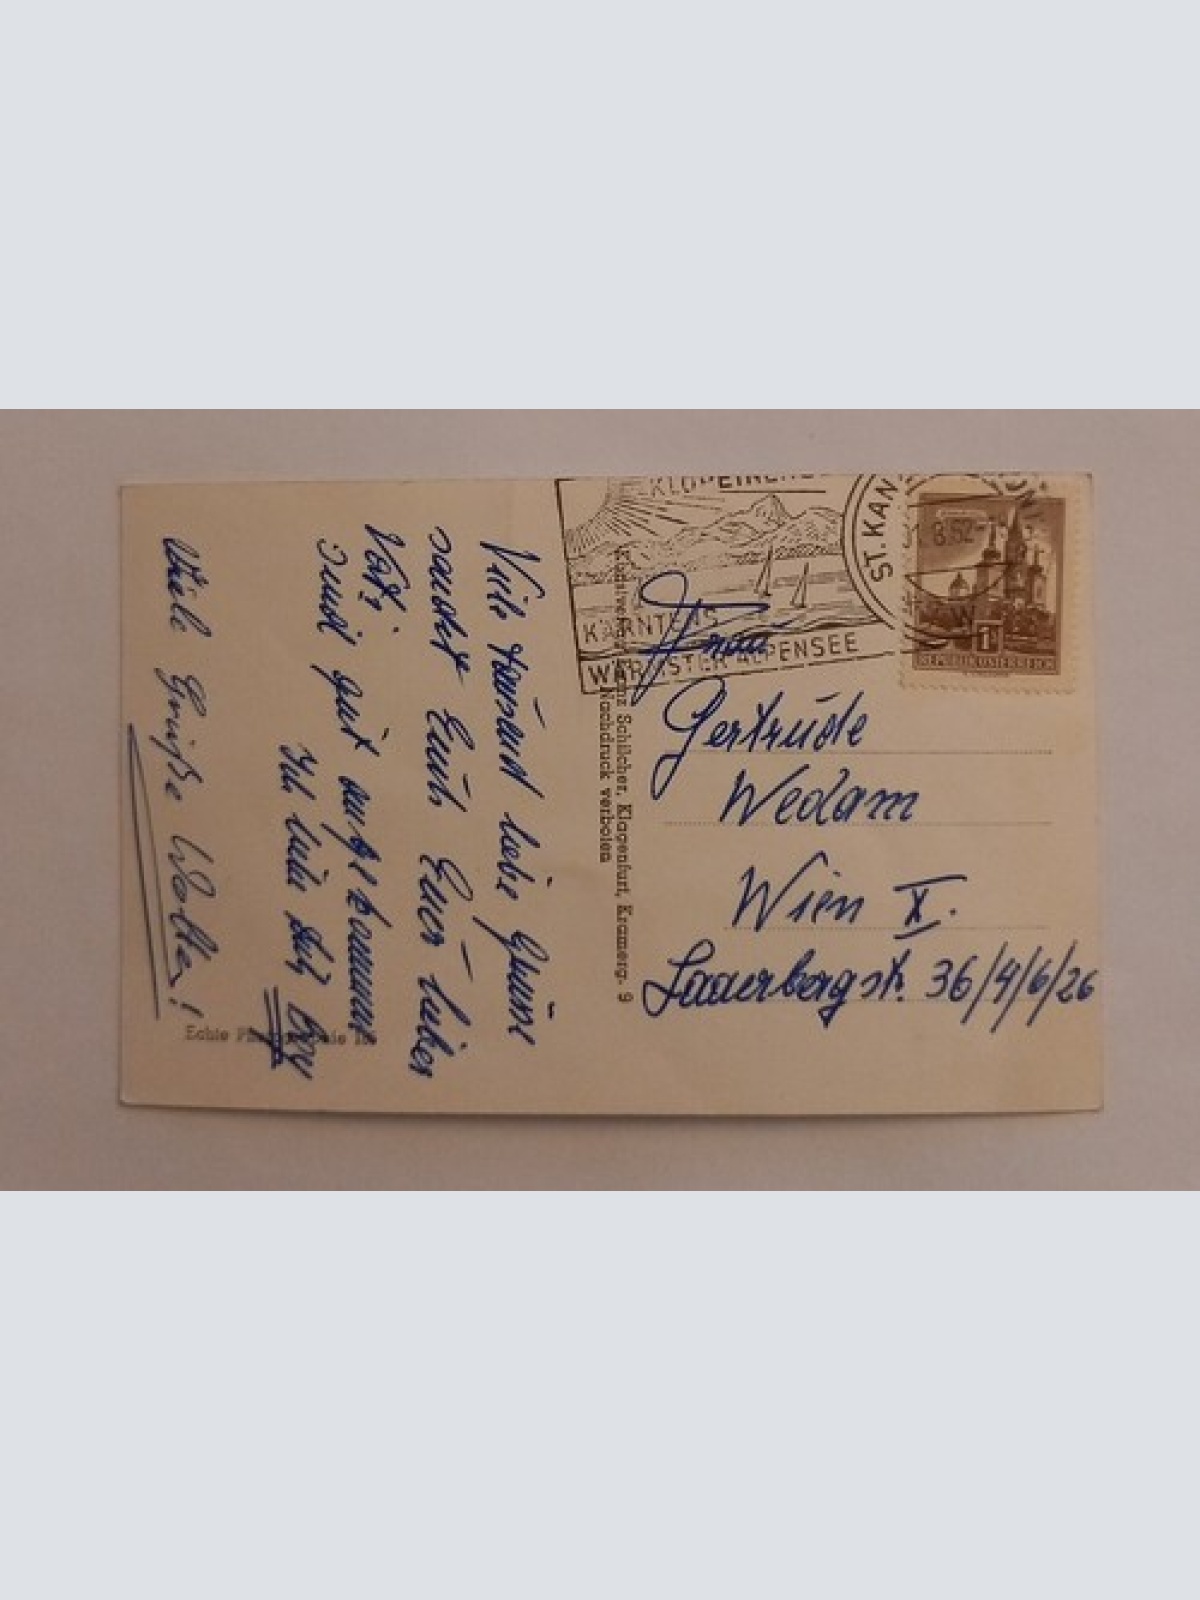 Viele tausend liebe Grüsse
sendet Euch Euer lieber
Vati,
sind gut angekommen
Viele Grüße
Echte
Nachdruck verboten
Franz Schilcher, Klagenfurt, Kramerg. 9
KLOPEINERSEE
KÄRNTENS
WÄRMSTER ALPENSEE
ST. KAN
8.62
1
REPUBLIK ÖSTERREICH
Frau
Gertrude
Wedam
Wien X.
Laaerbergstr. 36/4/6/26